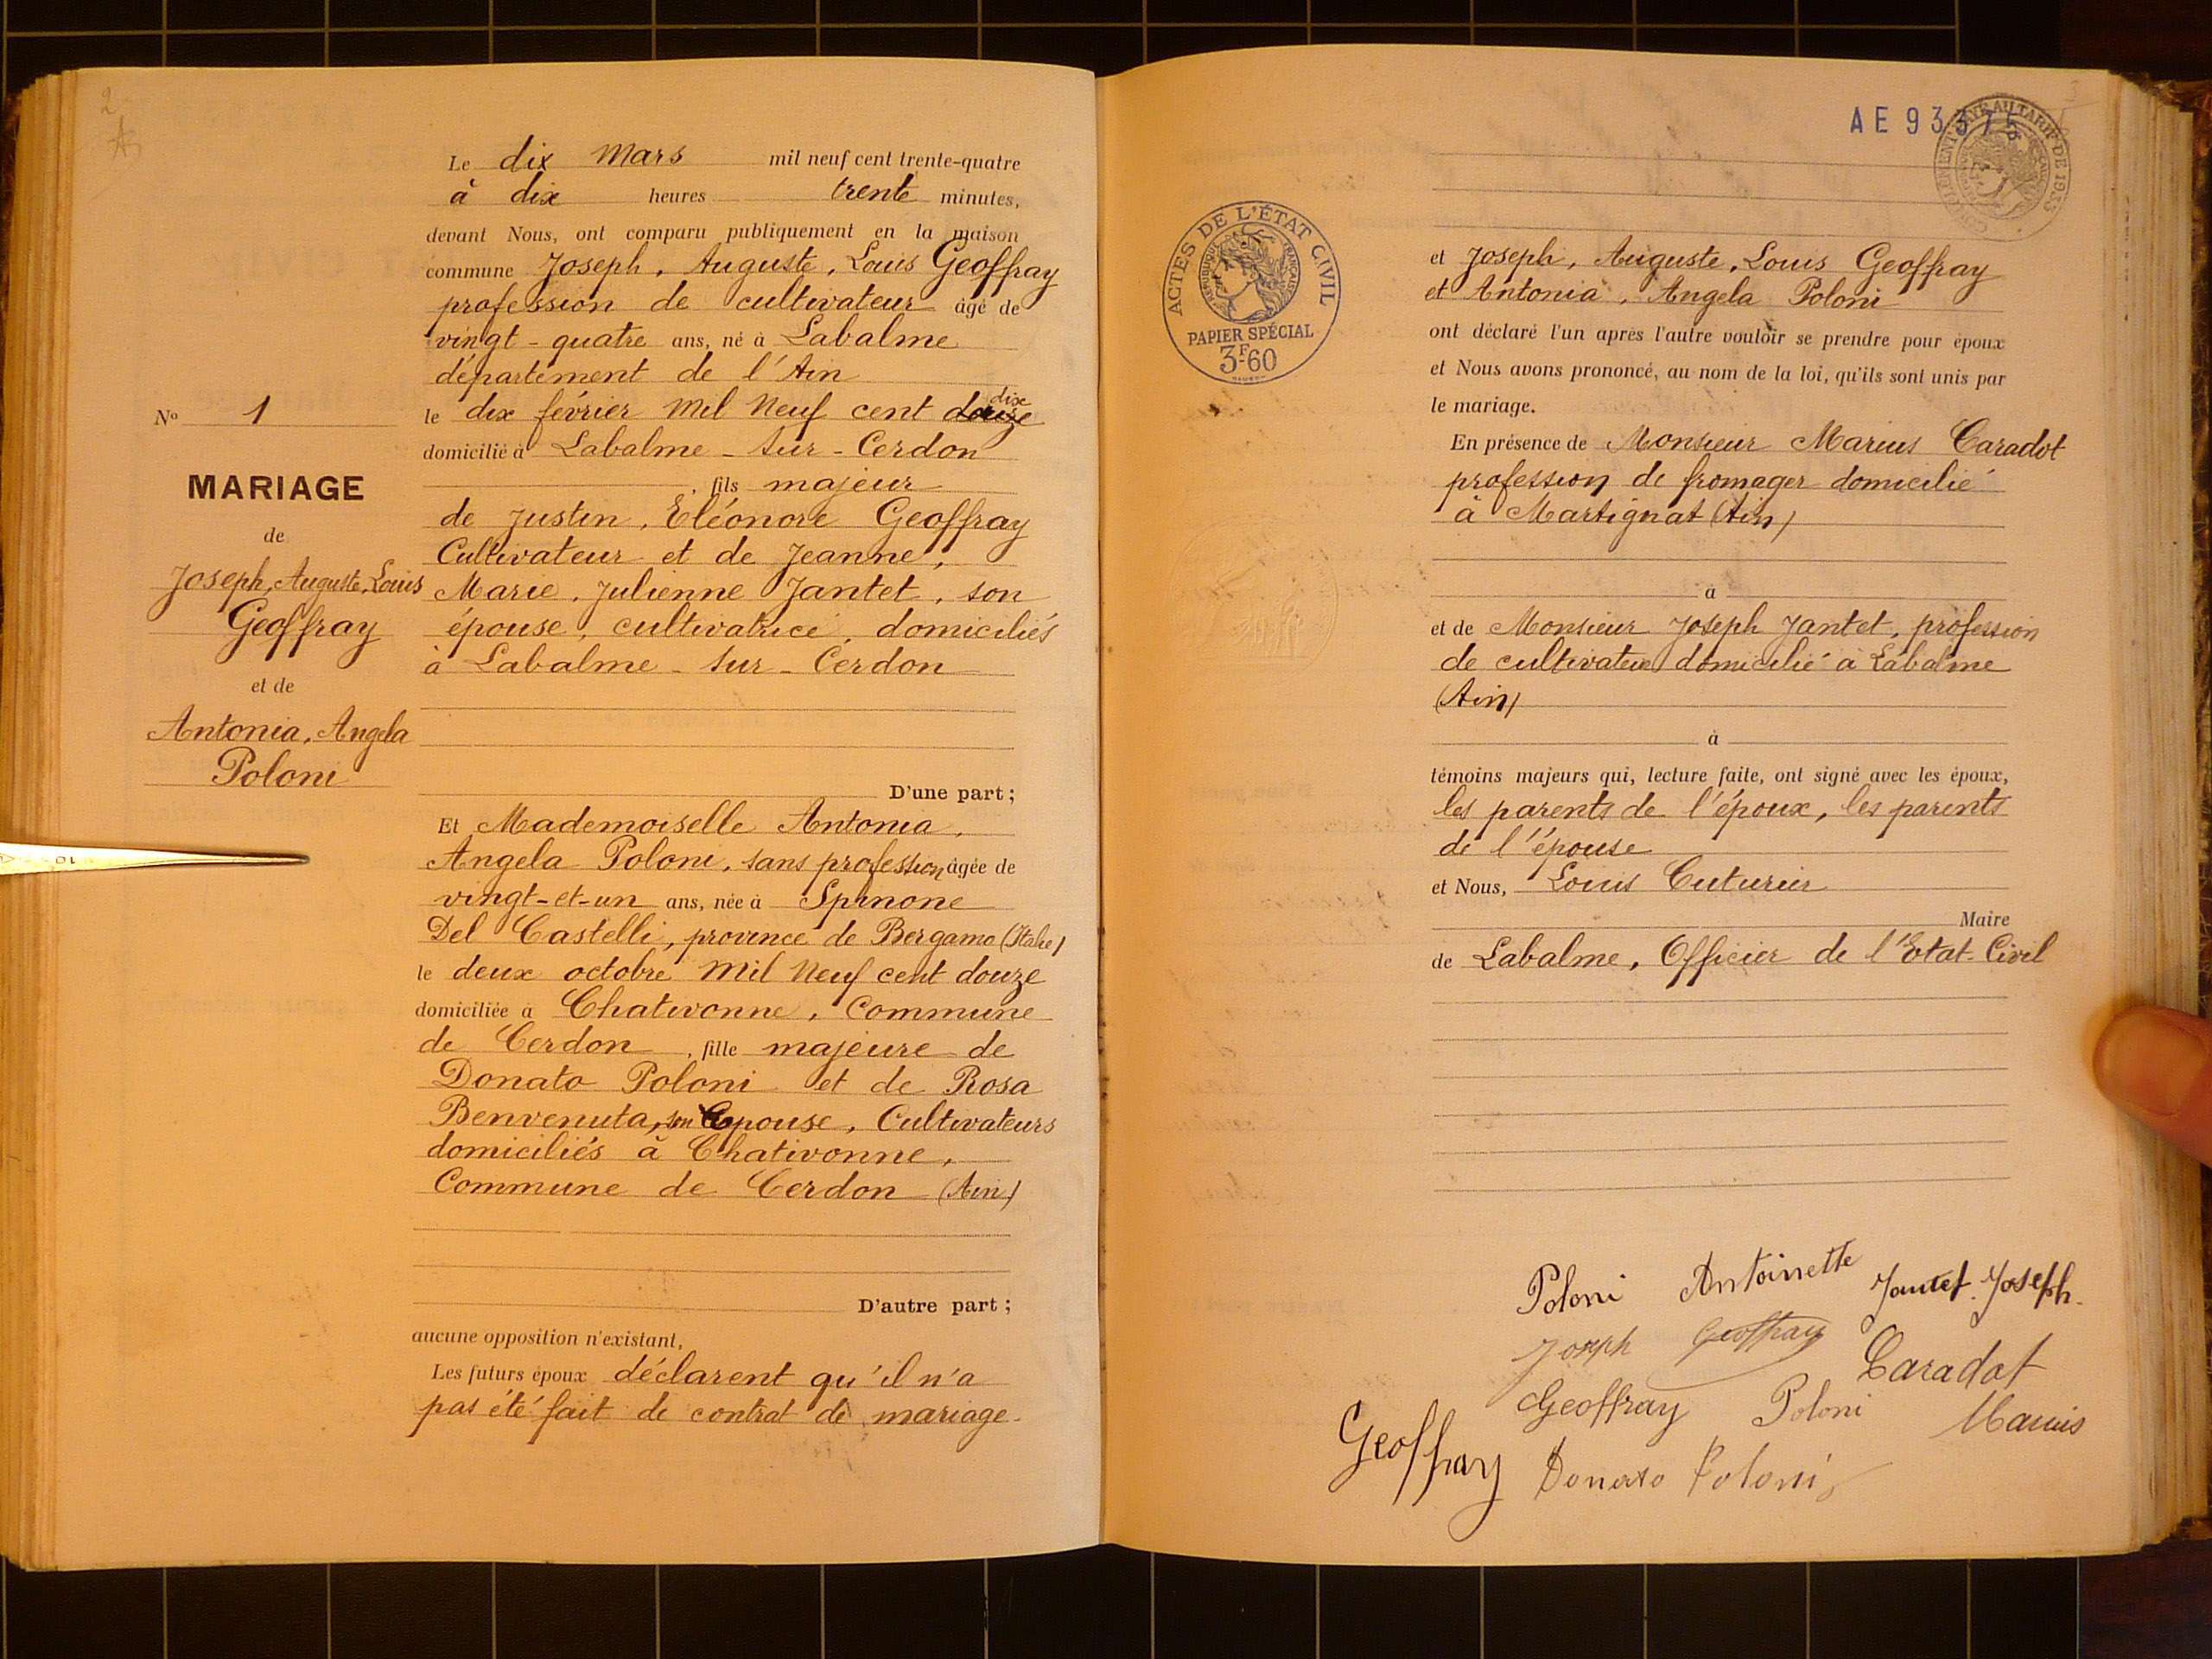 2
Le dix Mars mil neuf cent trente-quatre
à dix heures trente minutes,
devant Nous, ont comparu publiquement en la maison
commune Joseph, Auguste, Louis Geoffray
profession de cultivateur âgé de
vingt-quatre ans, né à Labalme
département de l'Ain
dix
le dix février Mil Neuf cent douze
domicilié à Labalme-sur-Cerdon
, fils majeur
de Justin, Eléonore Geoffray
Cultivateur et de Jeanne,
Marie, Julienne Jantet, son
épouse, cultivatrice, domiciliés
à Labalme-sur-Cerdon
D'une part ;
Nº 1
MARIAGE
de
Joseph, Auguste, Louis
Geoffray
et de
Antonia, Angela
Poloni
Et Mademoiselle Antonia,
Angela Poloni, sans profession âgée de
vingt-et-un ans, née à Spinone
Del Castelli, province de Bergamo (Italie)
le deux octobre Mil Neuf cent douze
domiciliée à Chativonne, Commune
de Cerdon, fille majeure de
Donato Poloni et de Rosa
Benvenuta, son Epouse, Cultivateurs
domiciliés à Chativonne,
Commune de Cerdon (Ain)
D'autre part ;
aucune opposition n'existant,
Les futurs époux déclarent qu'il n'a
pas été fait de contrat de mariage.
10
AE 9337
TARIF DE 1933
ACTES DE L'ÉTAT CIVIL
RÉPUBLIQUE FRANÇAISE
PAPIER SPÉCIAL
3F60
et Joseph, Auguste, Louis Geoffray
et Antonia, Angela Poloni
ont déclaré l'un après l'autre vouloir se prendre pour époux
et Nous avons prononcé, au nom de la loi, qu'ils sont unis par
le mariage.
En présence de Monsieur Marius Caradot
profession de fromager domicilié
à Martignat (Ain)
à
et de Monsieur Joseph Jantet, profession
de cultivateur domicilié à Labalme
(Ain)
à
témoins majeurs qui, lecture faite, ont signé avec les époux,
les parents de l'époux, les parents
de l'épouse
et Nous, Louis Cuturier
Maire
de Labalme, Officier de l'Etat-Civil
Poloni Antoinette Jantet Joseph.
Joseph Geoffray
Caradot
Marius
Geoffray Poloni
Geoffray Donato Poloni